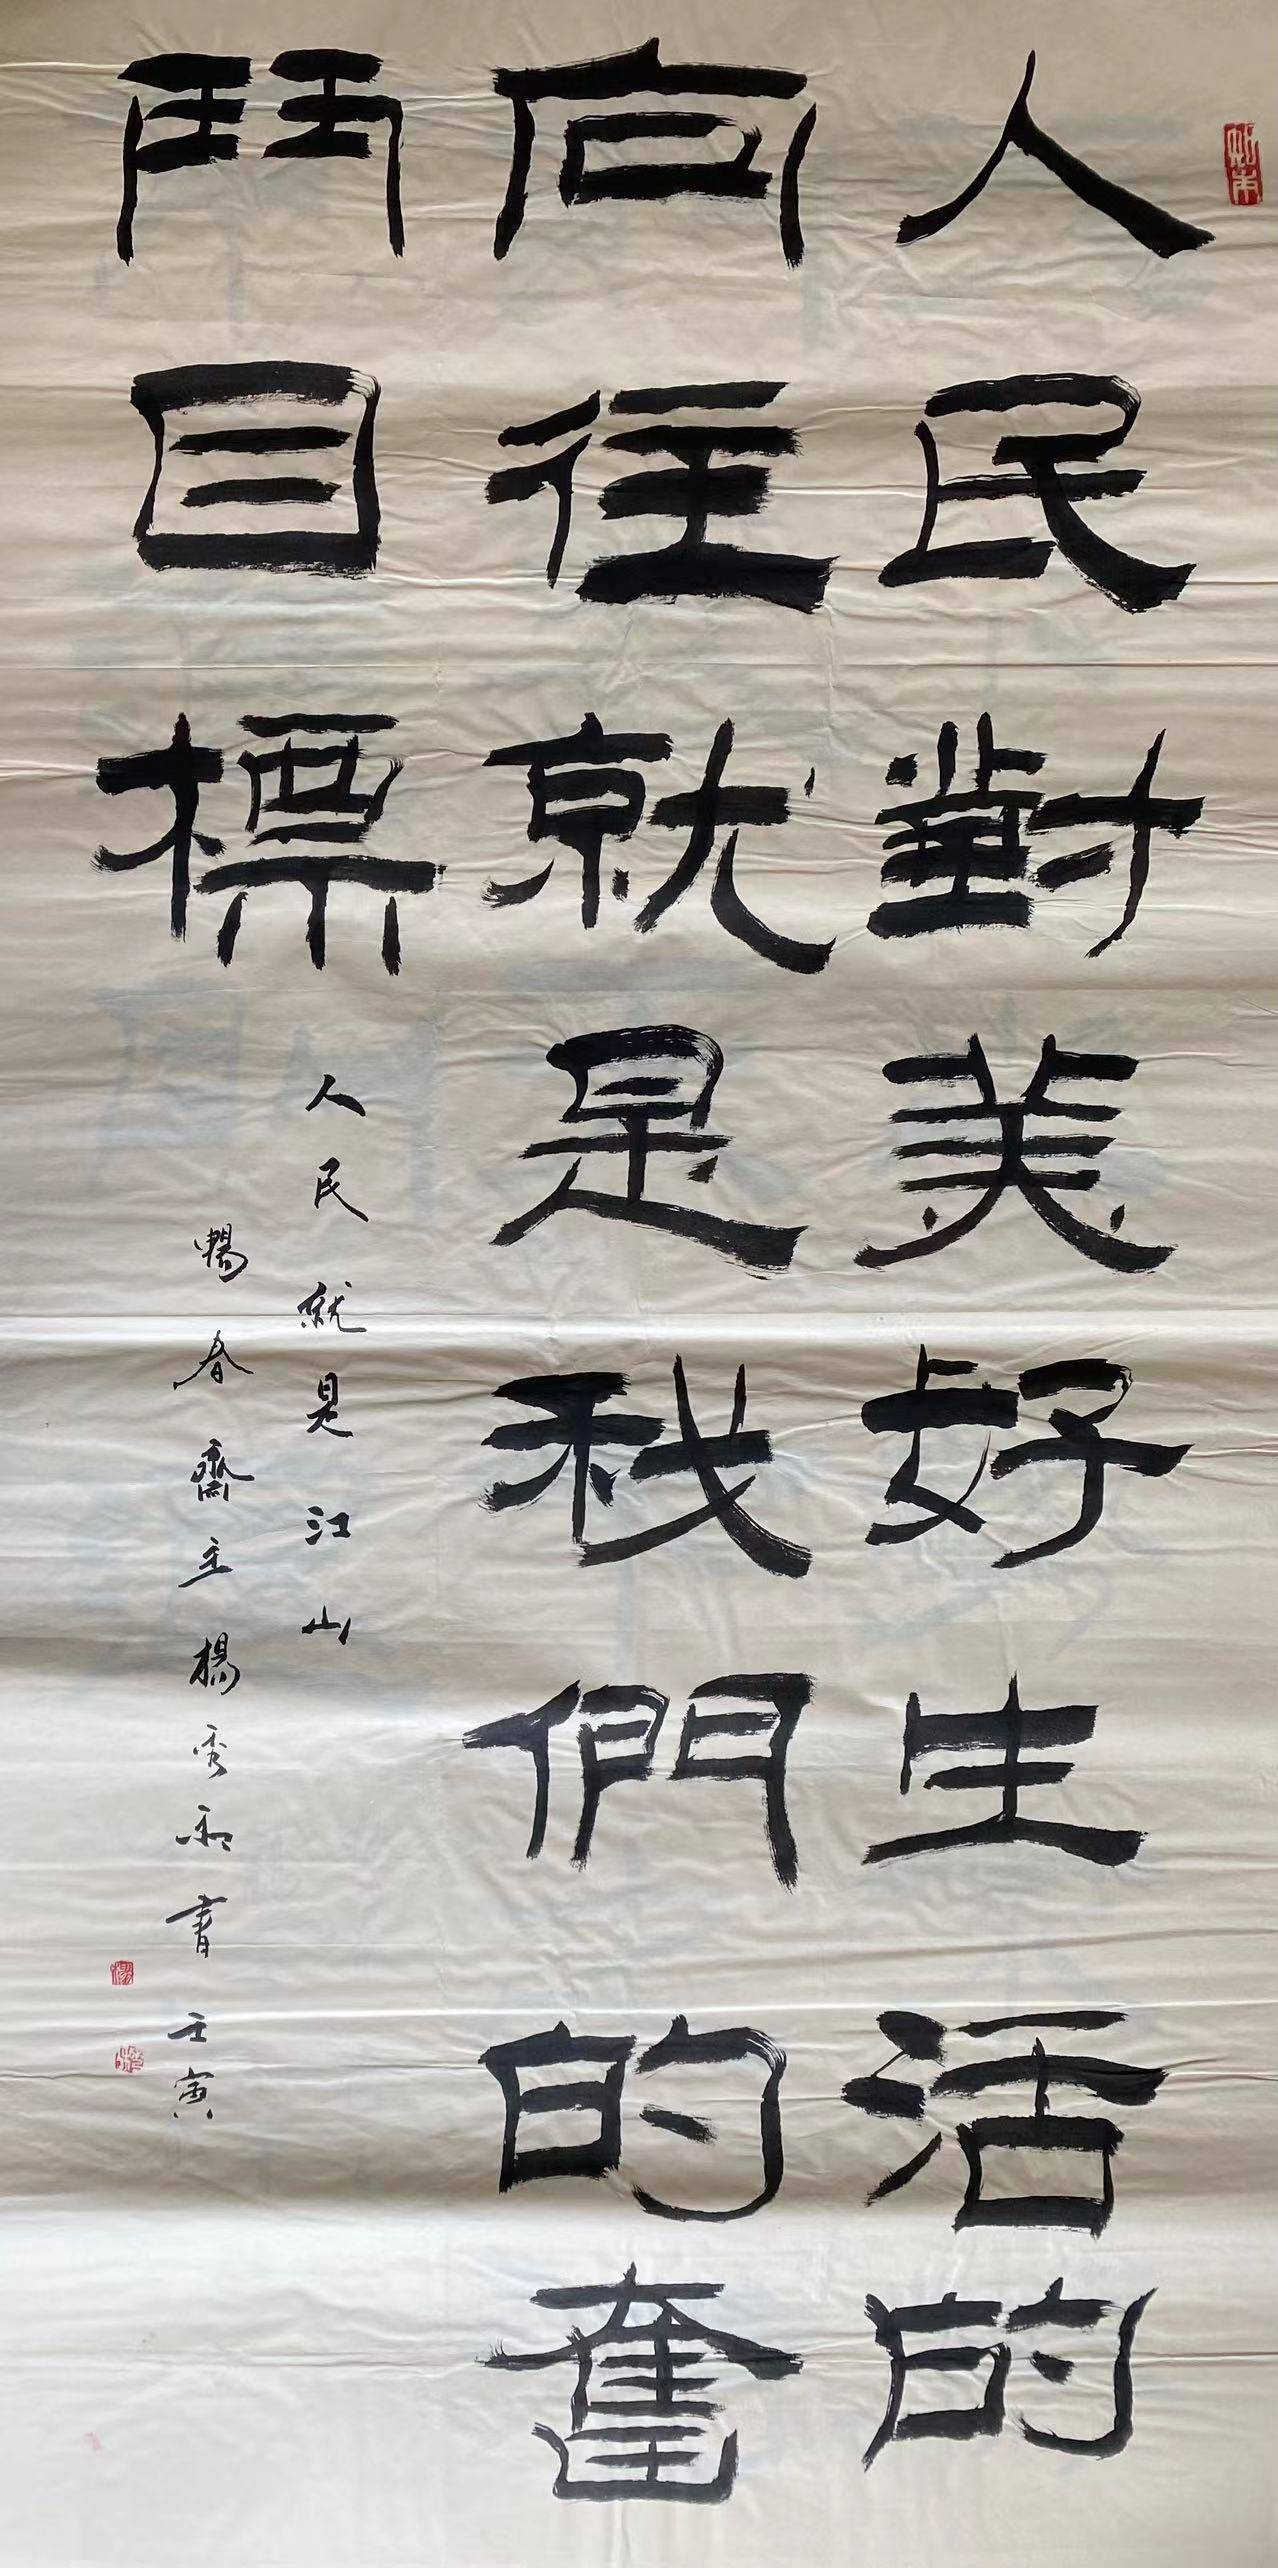 人民對美好生活的
向往就是我們的奮
鬥目標
人民就是江山
暢春齋主楊秀和書壬寅